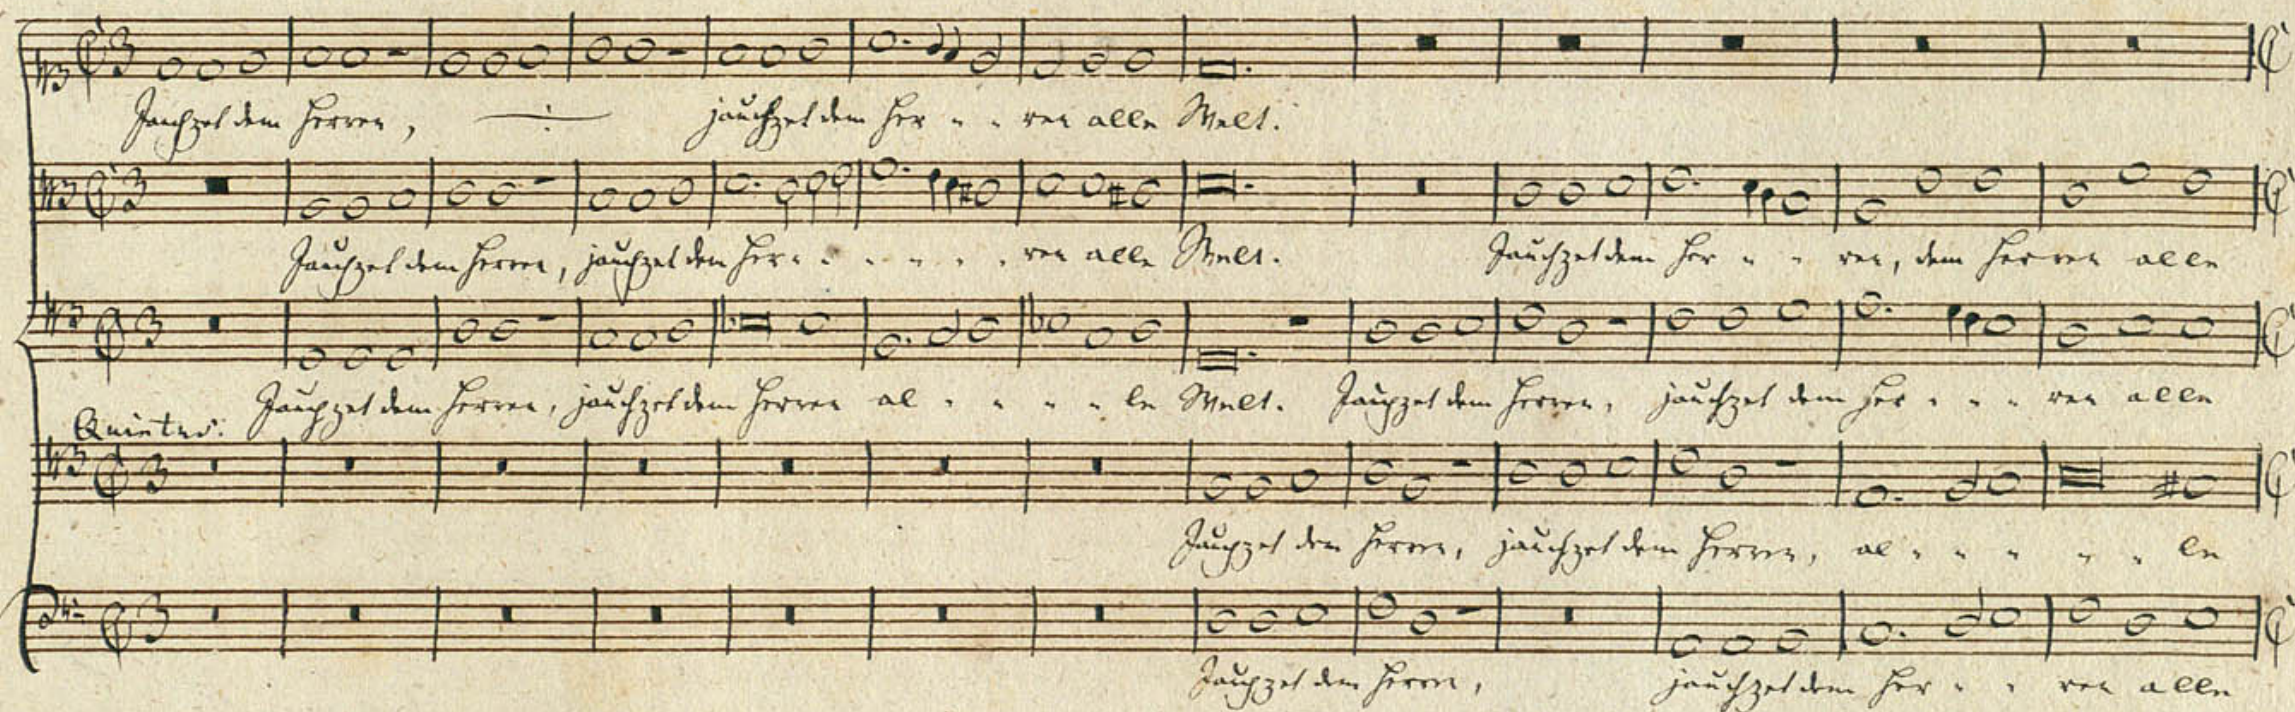 Jauchzet dem Herren, jauchzet dem Her - - ren alle Welt.
Jauchzet dem Herren, jauchzet dem Her - - - - - ren alle Welt. Jauchzet dem Her - - ren, dem Herren alle
Jauchzet dem Herren, jauchzet dem Herren al - - - - le Welt. Jauchzet dem Herren, jauchzet dem Her - - - ren alle
Quintus.
Jauchzet dem Herren, jauchzet dem Herren, al - - - - - le
Jauchzet dem Herren, jauchzet dem Her - - ren alle